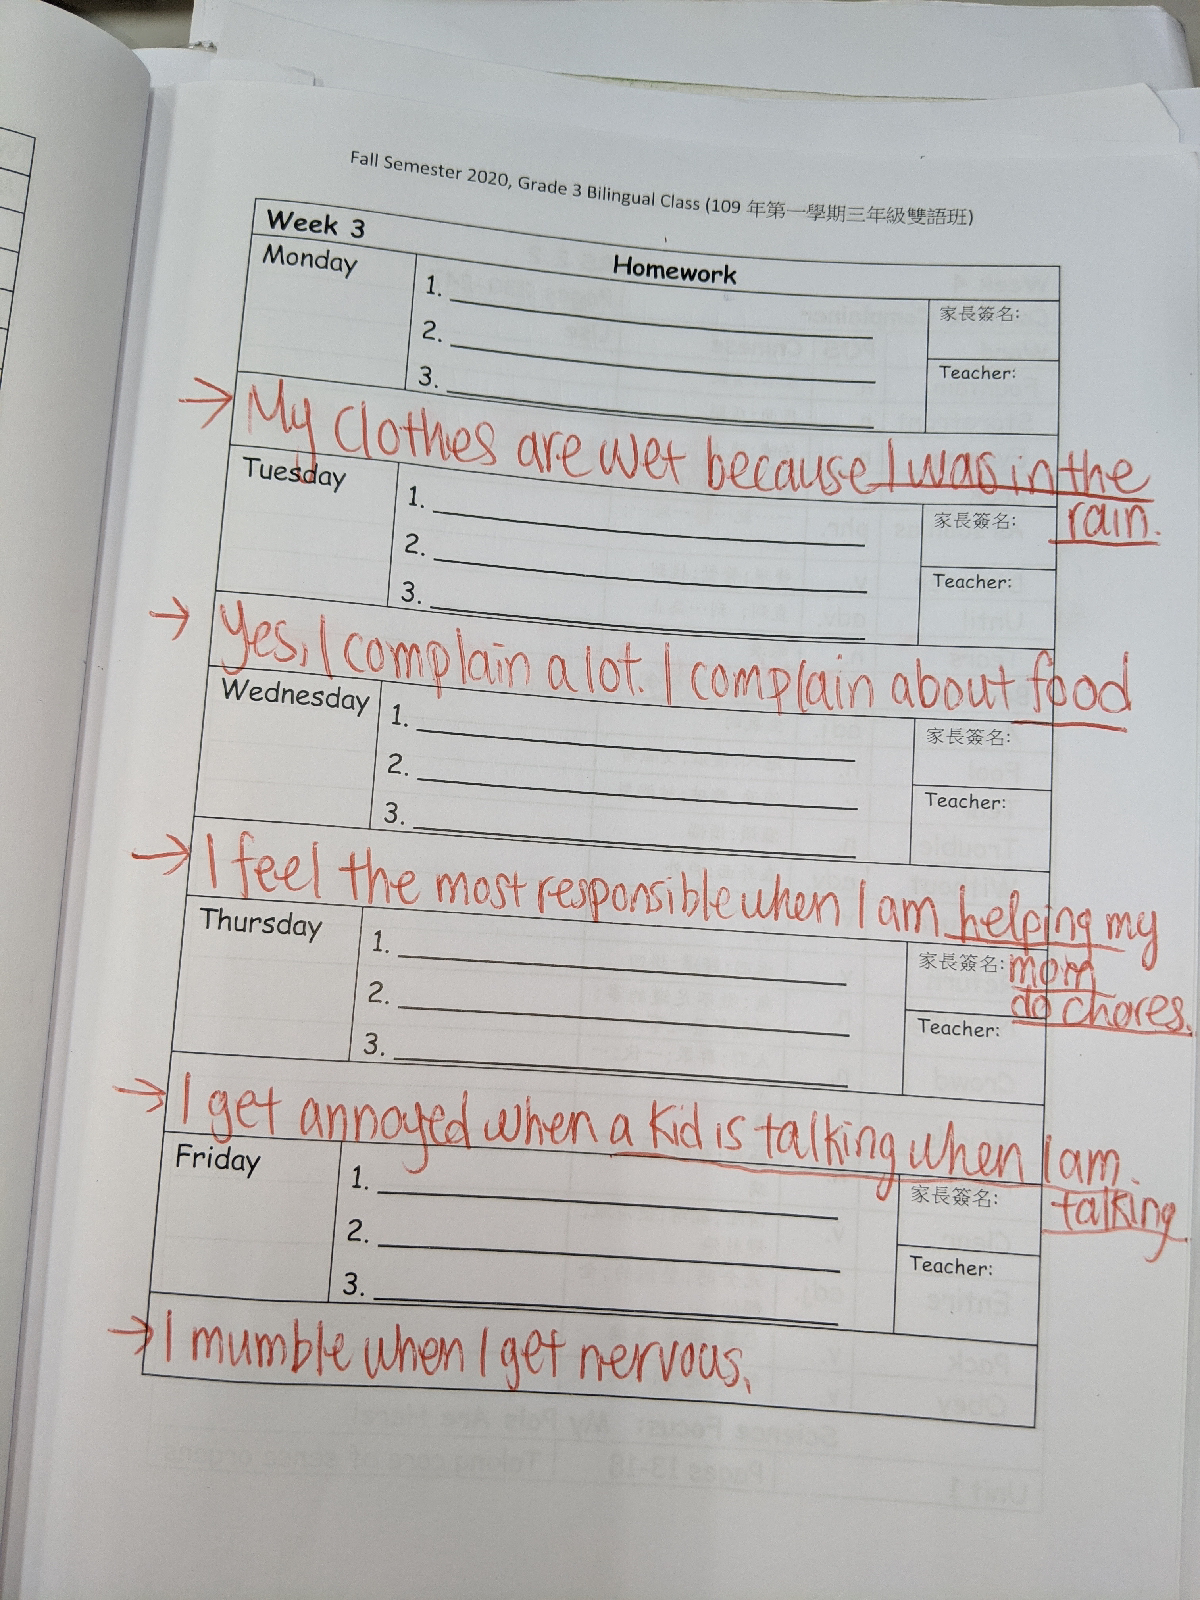 Fall Semester 2020, Grade 3 Bilingual Class (109 年第一學期三年級雙語班)
Week 3
Homework
Monday
1.
2.
3.
家長簽名:
Teacher:
→ My clothes are wet because I was in the
rain.
Tuesday
1.
2.
3.
家長簽名:
Teacher:
→ Yes, I complain a lot. I complain about food
Wednesday
1.
2.
3.
家長簽名:
Teacher:
→ I feel the most responsible when I am helping my
mom
do chores.
Thursday
1.
2.
3.
家長簽名:
Teacher:
→ I get annoyed when a kid is talking when I am.
talking.
Friday
1.
2.
3.
家長簽名:
Teacher:
→ I mumble when I get nervous.